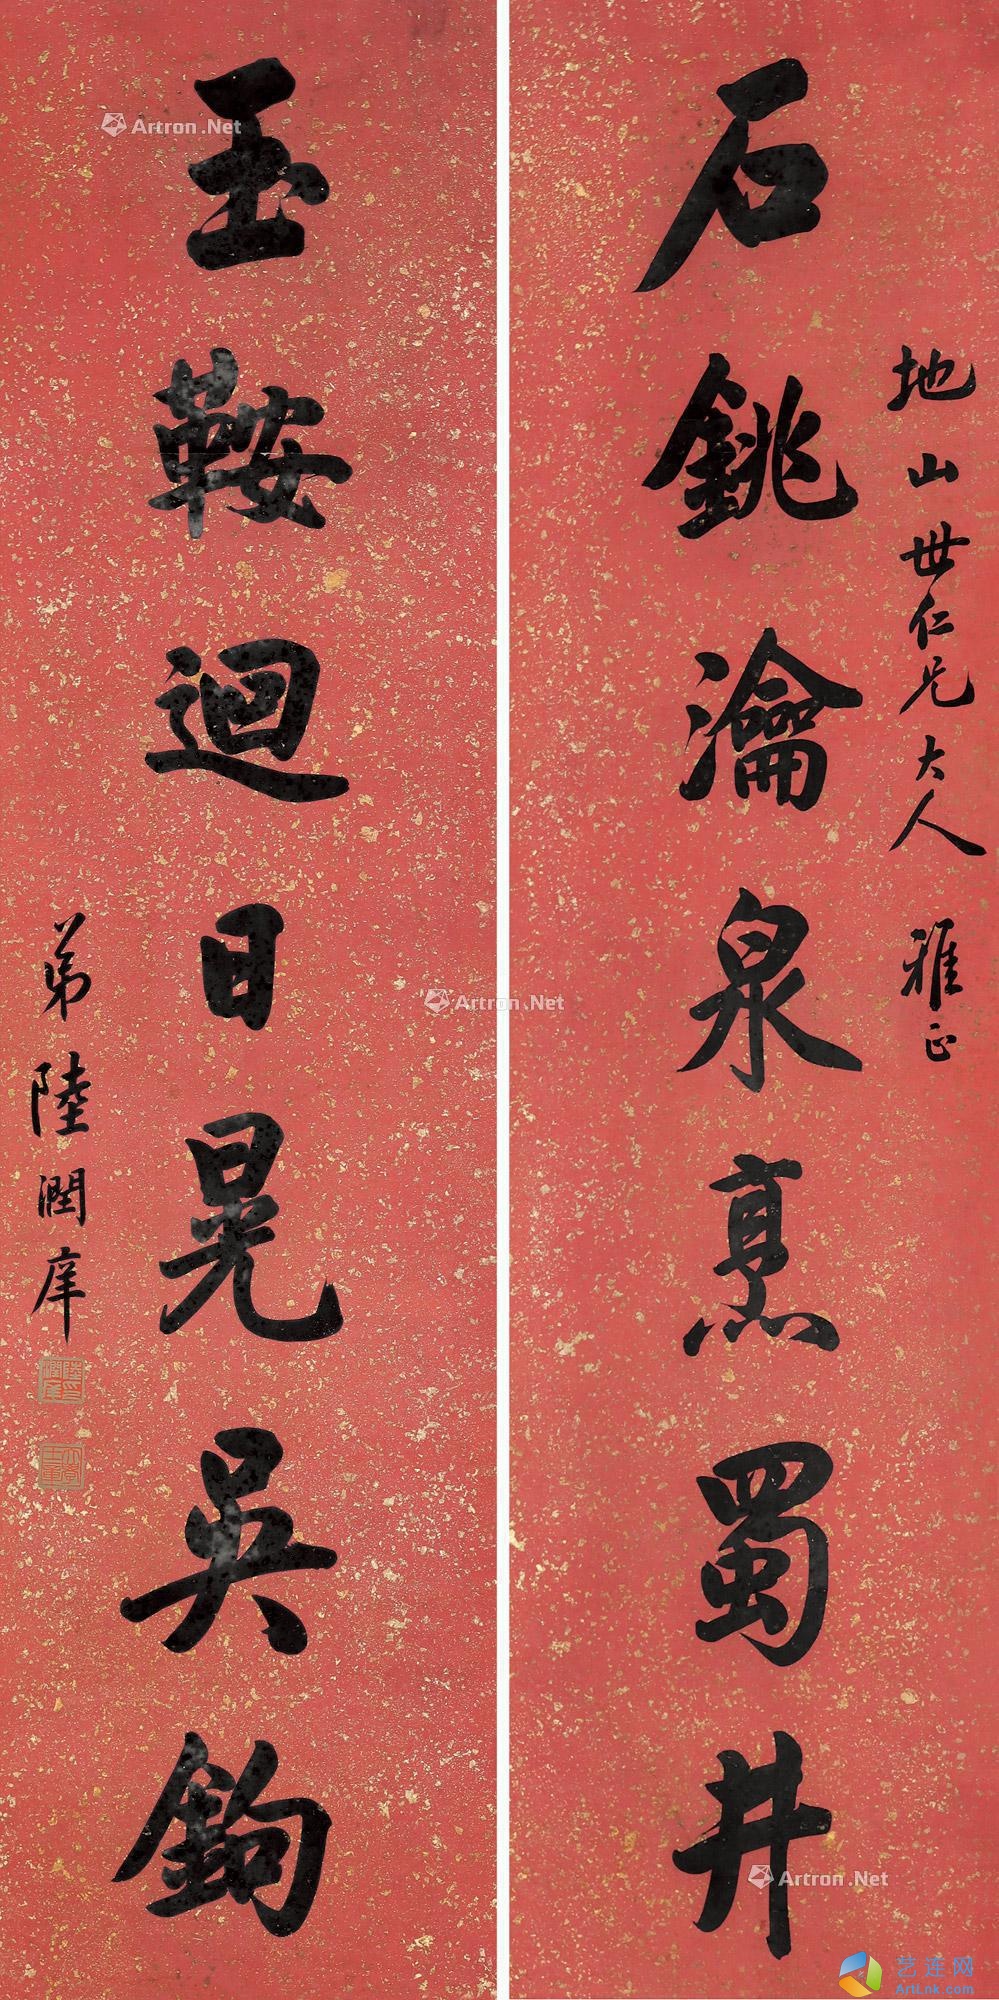 地山世仁兄大人雅正
石銚瀹泉烹蜀井
玉鞍迴日晃吳鉤
弟陸潤庠
Artron.Net
Artron.Net
Artron.Net
Artron.Net
Artron.Net
艺连网
ArtLnk.com